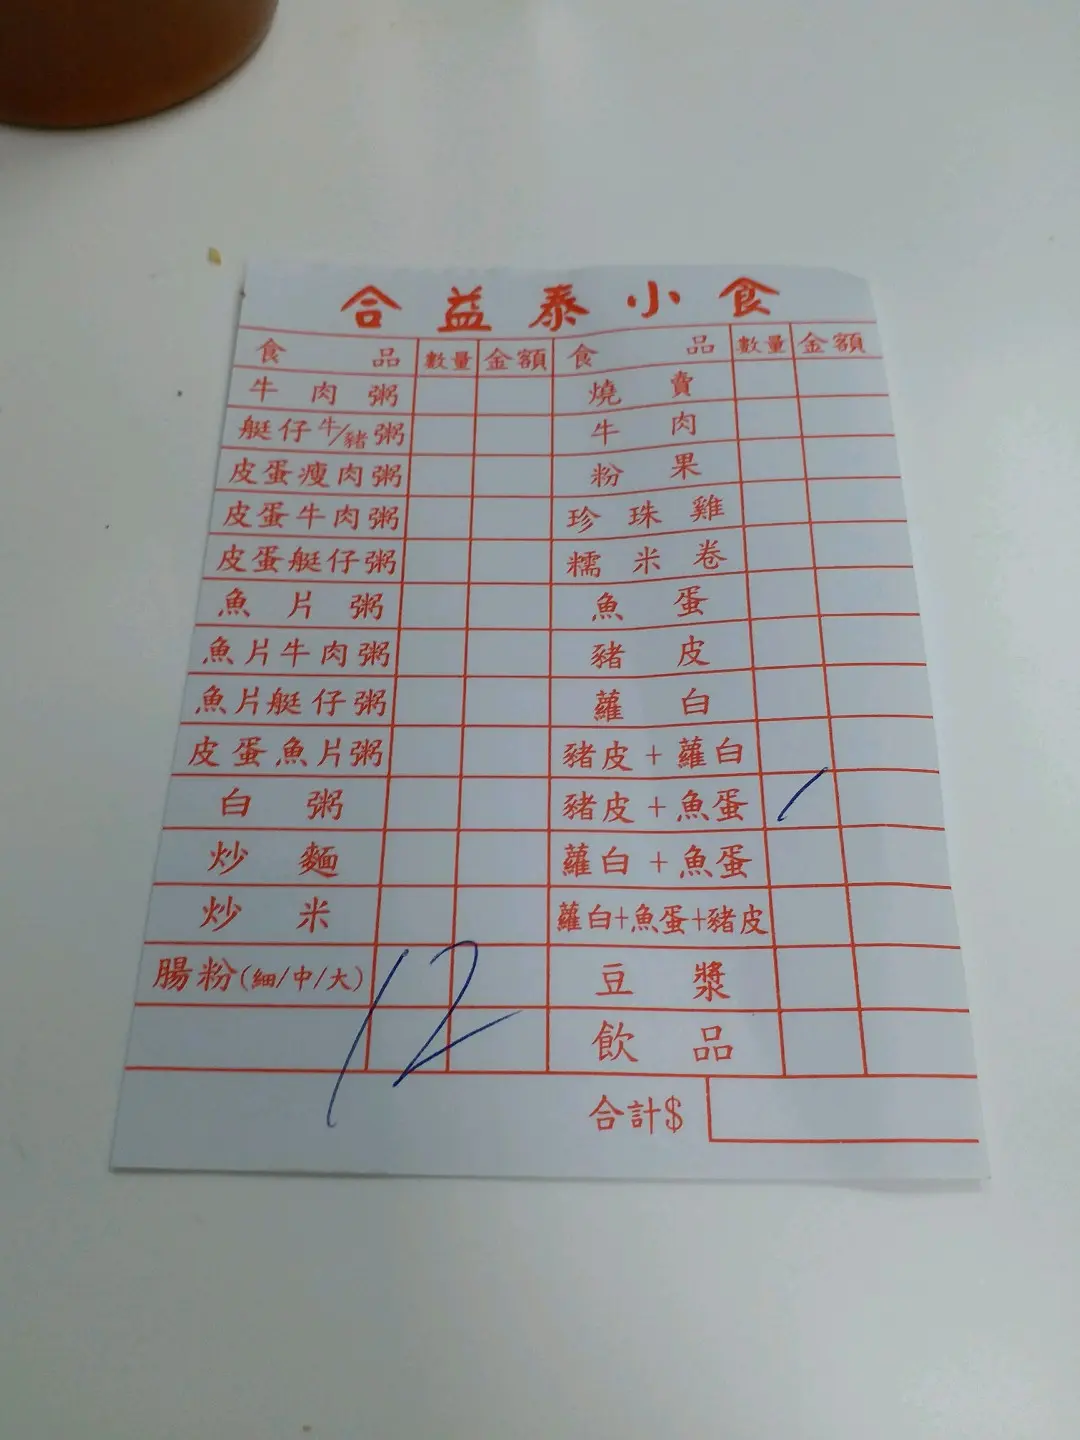 合益泰小食
食品 數量 金額 食品 數量 金額
牛肉粥 燒賣
艇仔牛/豬粥 牛肉
皮蛋瘦肉粥 粉果
皮蛋牛肉粥 珍珠雞
皮蛋艇仔粥 糯米卷
魚片粥 魚蛋
魚片牛肉粥 豬皮
魚片艇仔粥 蘿白
皮蛋魚片粥 豬皮+蘿白
白粥 豬皮+魚蛋 /
炒麵 蘿白+魚蛋
炒米 蘿白+魚蛋+豬皮
腸粉(細/中/大) 豆漿
飲品
12
合計$